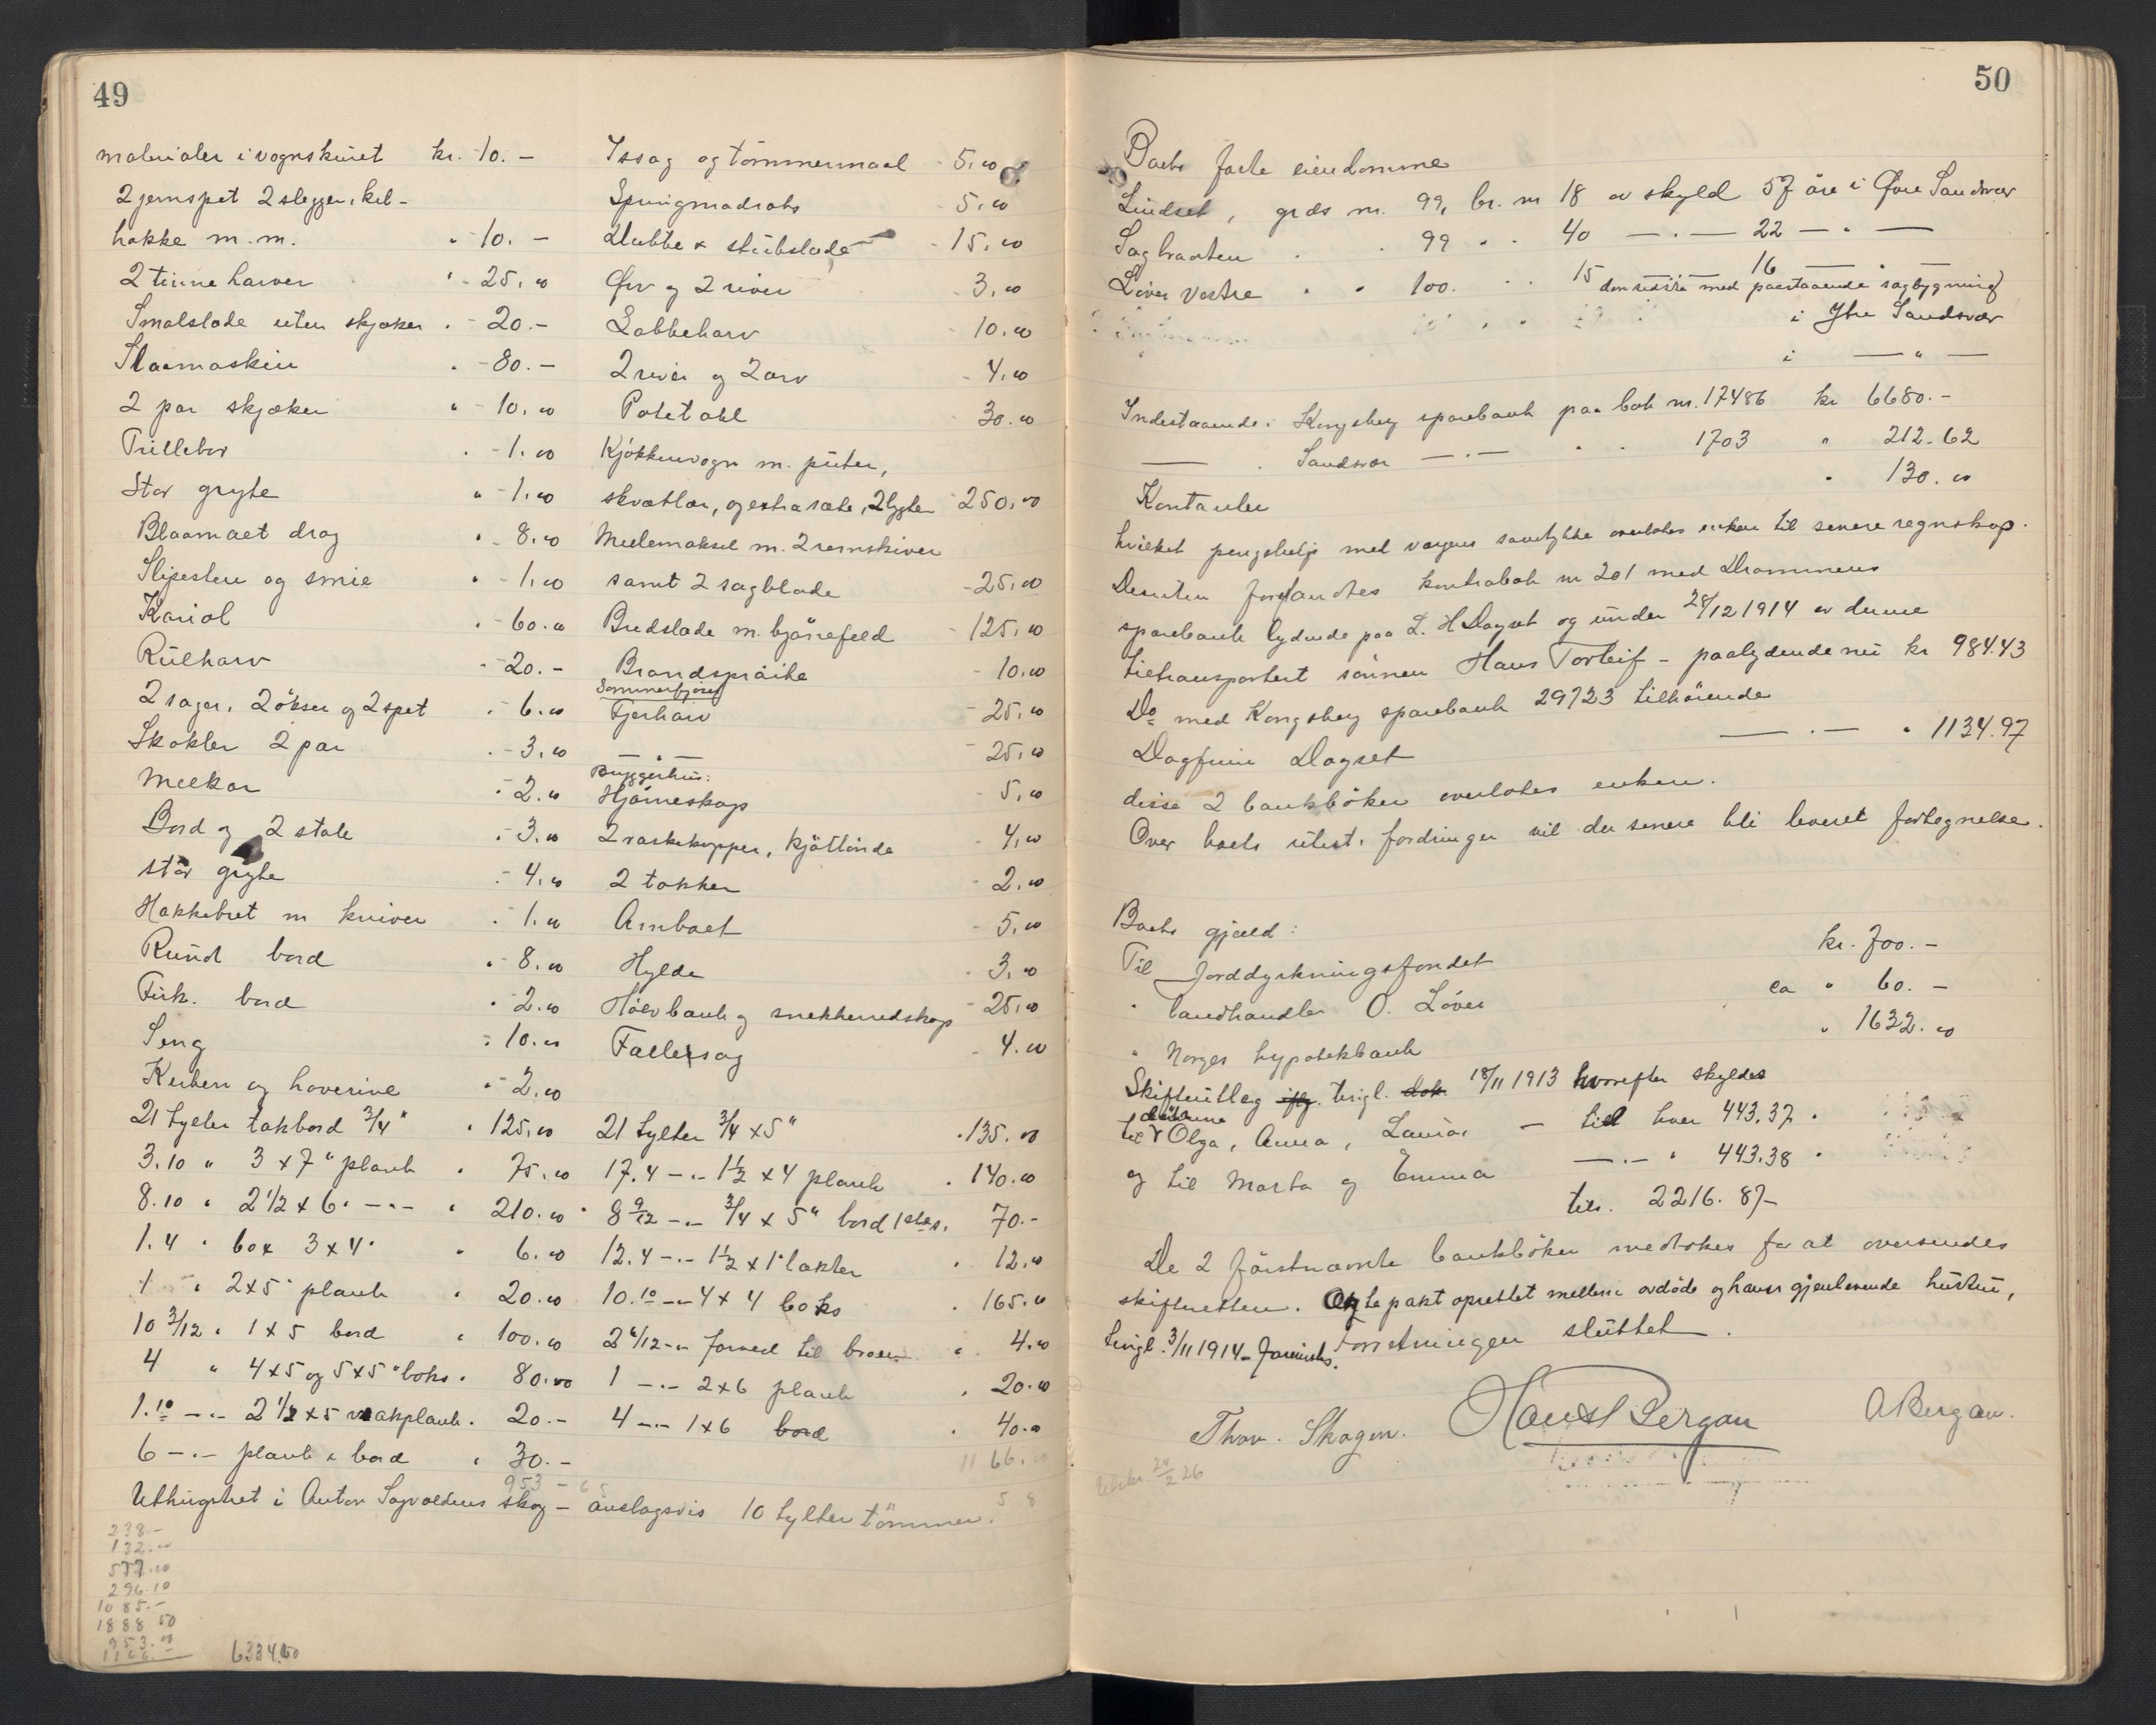 49
materialer i vognskuret kr. 10.-
2 jernspet 2 slegger, kil-
hakke m.m. " 10.-
2 tinneharver " 25.00
Smalslæde uten skjæker " 20.-
Slaamaskin " 80.-
2 par skjæker " 10.00
Trillebør " 1.00
Stor gryte " 1.00
Blaamalet drag " 8.00
Slipesten og smie " 1.00
Kariol " 60.00
Rulharv " 20.-
2 sager, 2 økser og 2 spet " 6.00
Skokler 2 par " 3.00
Melkar " 2.00
Bord og 2 stole " 3.00
stor gryte " 4.00
Hakkebret m kniver " 1.00
Rund bord " 8.00
Firk. bord " 2.00
Seng " 10.00
Kuben og haverive " 2.00
21 tylter takbord 3/4" " 125.00
3.10 " 3 x 7" plank " 75.00
8.10 " 2 1/2 x 6" -"- " 210.00
1.4 " box 3 x 4" " 6.00
1 " 2x5" plank " 20.00
10 3/12 " 1 x 5 bord " 100.00
4 " 4x5 og 5x5" boks " 80.00
1.10 -"- 2 1/2 x 5 vrakplank " 20.-
6 -"- plank & bord " 30.-
953 -
Issag og tømmermaal - 5.00
Springmadrats - 5.00
Klubbe & stubslæde - 15.00
Orv og 2 river - 3.00
Labbeharv - 10.00
2 river og 2 orv - 4.00
Potetahl - 30.00
Kjøkkenvogn m. puter,
skvætlær, og extrasæte, 2 lygter - 250.00
Mellemaksel m. 2 remskiver
samt 2 sagblade - 25.00
Bredslæde m. bjørnefeld - 125.00
Brandsprøite - 10.00
Sommerfjøset
Fjerharv - 25.00
-"- - 25.00
Bryggerhus:
Hjørneskap - 5.00
2 vaskekopper, kjøttønde - 4.00
2 takker - 2.00
Ambolt - 5.00
Hylde - 3.00
Høvlbenk og snekkerredskap - 25.00
Fællessag - 4.00
21 tylter 3/4 x 5" " 135.00
17.4 -"- 1 1/2 x 4 plank " 140.00
8 9/12 -"- 3/4 x 5" bord 1 stas. 70.-
12.4 -"- 1 1/2 x 1" lækter " 12.00
10.10 -"- 4 x 4 boks " 165.00
2 6/12 -"- forved til broen " 4.00
1 -"- 2x6 plank " 20.00
4 -"- 1x6 bord " 40.00
1166.00
Uthugstret i Anton Sagvoldens skog - anslagsvis 10 tylter tømmer.
238.-
132.00
577.00
296.10
1085.-
1888 50
953.00
1166.-
6334.60
50
Boets faste eiendomme
Lindset, grds nr. 99, br. nr 18 av skyld 57 øre i Øvre Sandsvær
Sagbraaten " " 99 " " 40 -"- 22 -"-
Løver Vestre " " 100. " " 15 16 -"-
den sidste med paastaaende sagbygning
i Ytre Sandsvær
i -"-
Indestaaende i Kongsberg sparebank paa bok nr. 17486 kr 6680.-
-"- Sandsvær -"- " " 1703 " 212.62
Kontanter " 130.00
hvilket pengebeløp med vergens samtykke overlates enken til senere regnskap.
Desuten forefandtes kontrabok nr 201 med Drammens
sparebank lydende paa L. H Dagset og under 28/12 1914 av denne
tiltransportert sønnen Hans Torleif - paalydende nu kr 984.43
Do med Kongsberg sparebank 29723 tilhørende
Dagfinn Dagset -"- " 1134.97
disse 2 bankbøker overlates enken.
Over boets utest. fordringer vil der senere bli leveret fortegnelse.
Boets gjæld:
Til Jorddyrkningsfondet kr. 700.-
" landhandler O. Løver ca " 60.-
" Norges hypotekbank " 1632.00
Skifteutlæg iflg. tingl. dok. 18/11 1913 hvorefter skyldes
døtrene
til Olga, Anna, Laura, - til hver 443.37 "
og til Marta og Emma -"- " 443.38 "
tils. 2216.87-
De 2 førstnævnte bankbøker medtokes for at oversendes
skifteretten. Egtepakt oprettet mellem avdøde og hans gjenlevende hustru,
tingl. 3/11 1914 - Forretningen sluttet.
Thor. Skogen. Hans Bergan A Bergan.